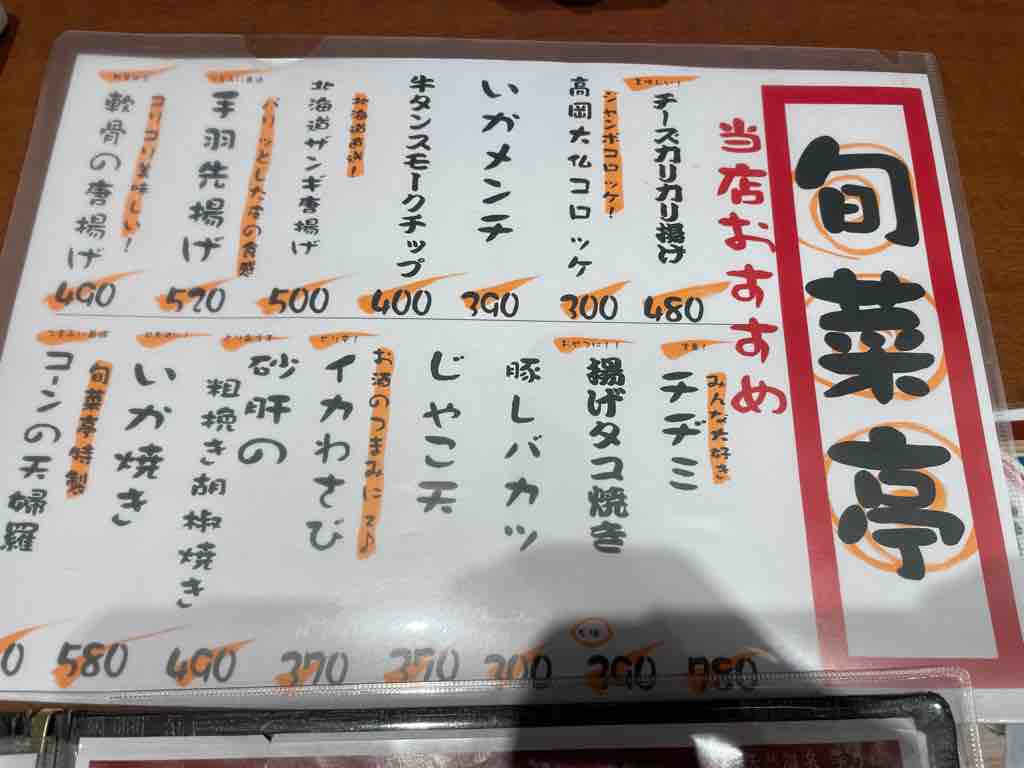 旬菜亭
当店おすすめ
美味しい!
チーズカリカリ揚げ
480
ジャンボコロッケ!
高岡大仏コロッケ
300
いかメンチ
390
牛タンスモークチップ
400
北海道直送!
北海道ザンギ唐揚げ
500
パリッとした皮の食感
手羽先揚げ
520
コリコリ美味しい!
軟骨の唐揚げ
490
定番!
みんな大好き
チヂミ
780
おやつに!!
揚げタコ焼き
5個
390
豚レバカツ
300
じゃこ天
370
お酒のつまみにて♪
ピリ辛!
イカわさび
370
砂肝の
粗挽き胡椒焼き
490
いか焼き
580
旬菜亭特製
コーンの天婦羅
0